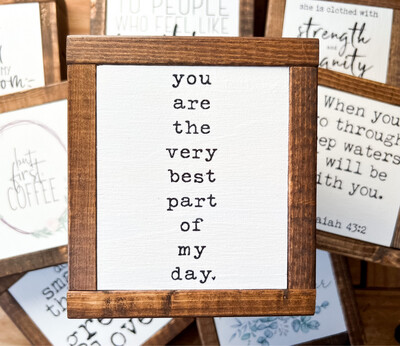 TO PEOPLE
WHO FEEL LIKE
she is clothed with
strength
and
dignity
MY
but
first
COFFEE
you
are
the
very
best
part
of
my
day.
When you
go through
deep waters
I will be
with you.
Isaiah 43:2